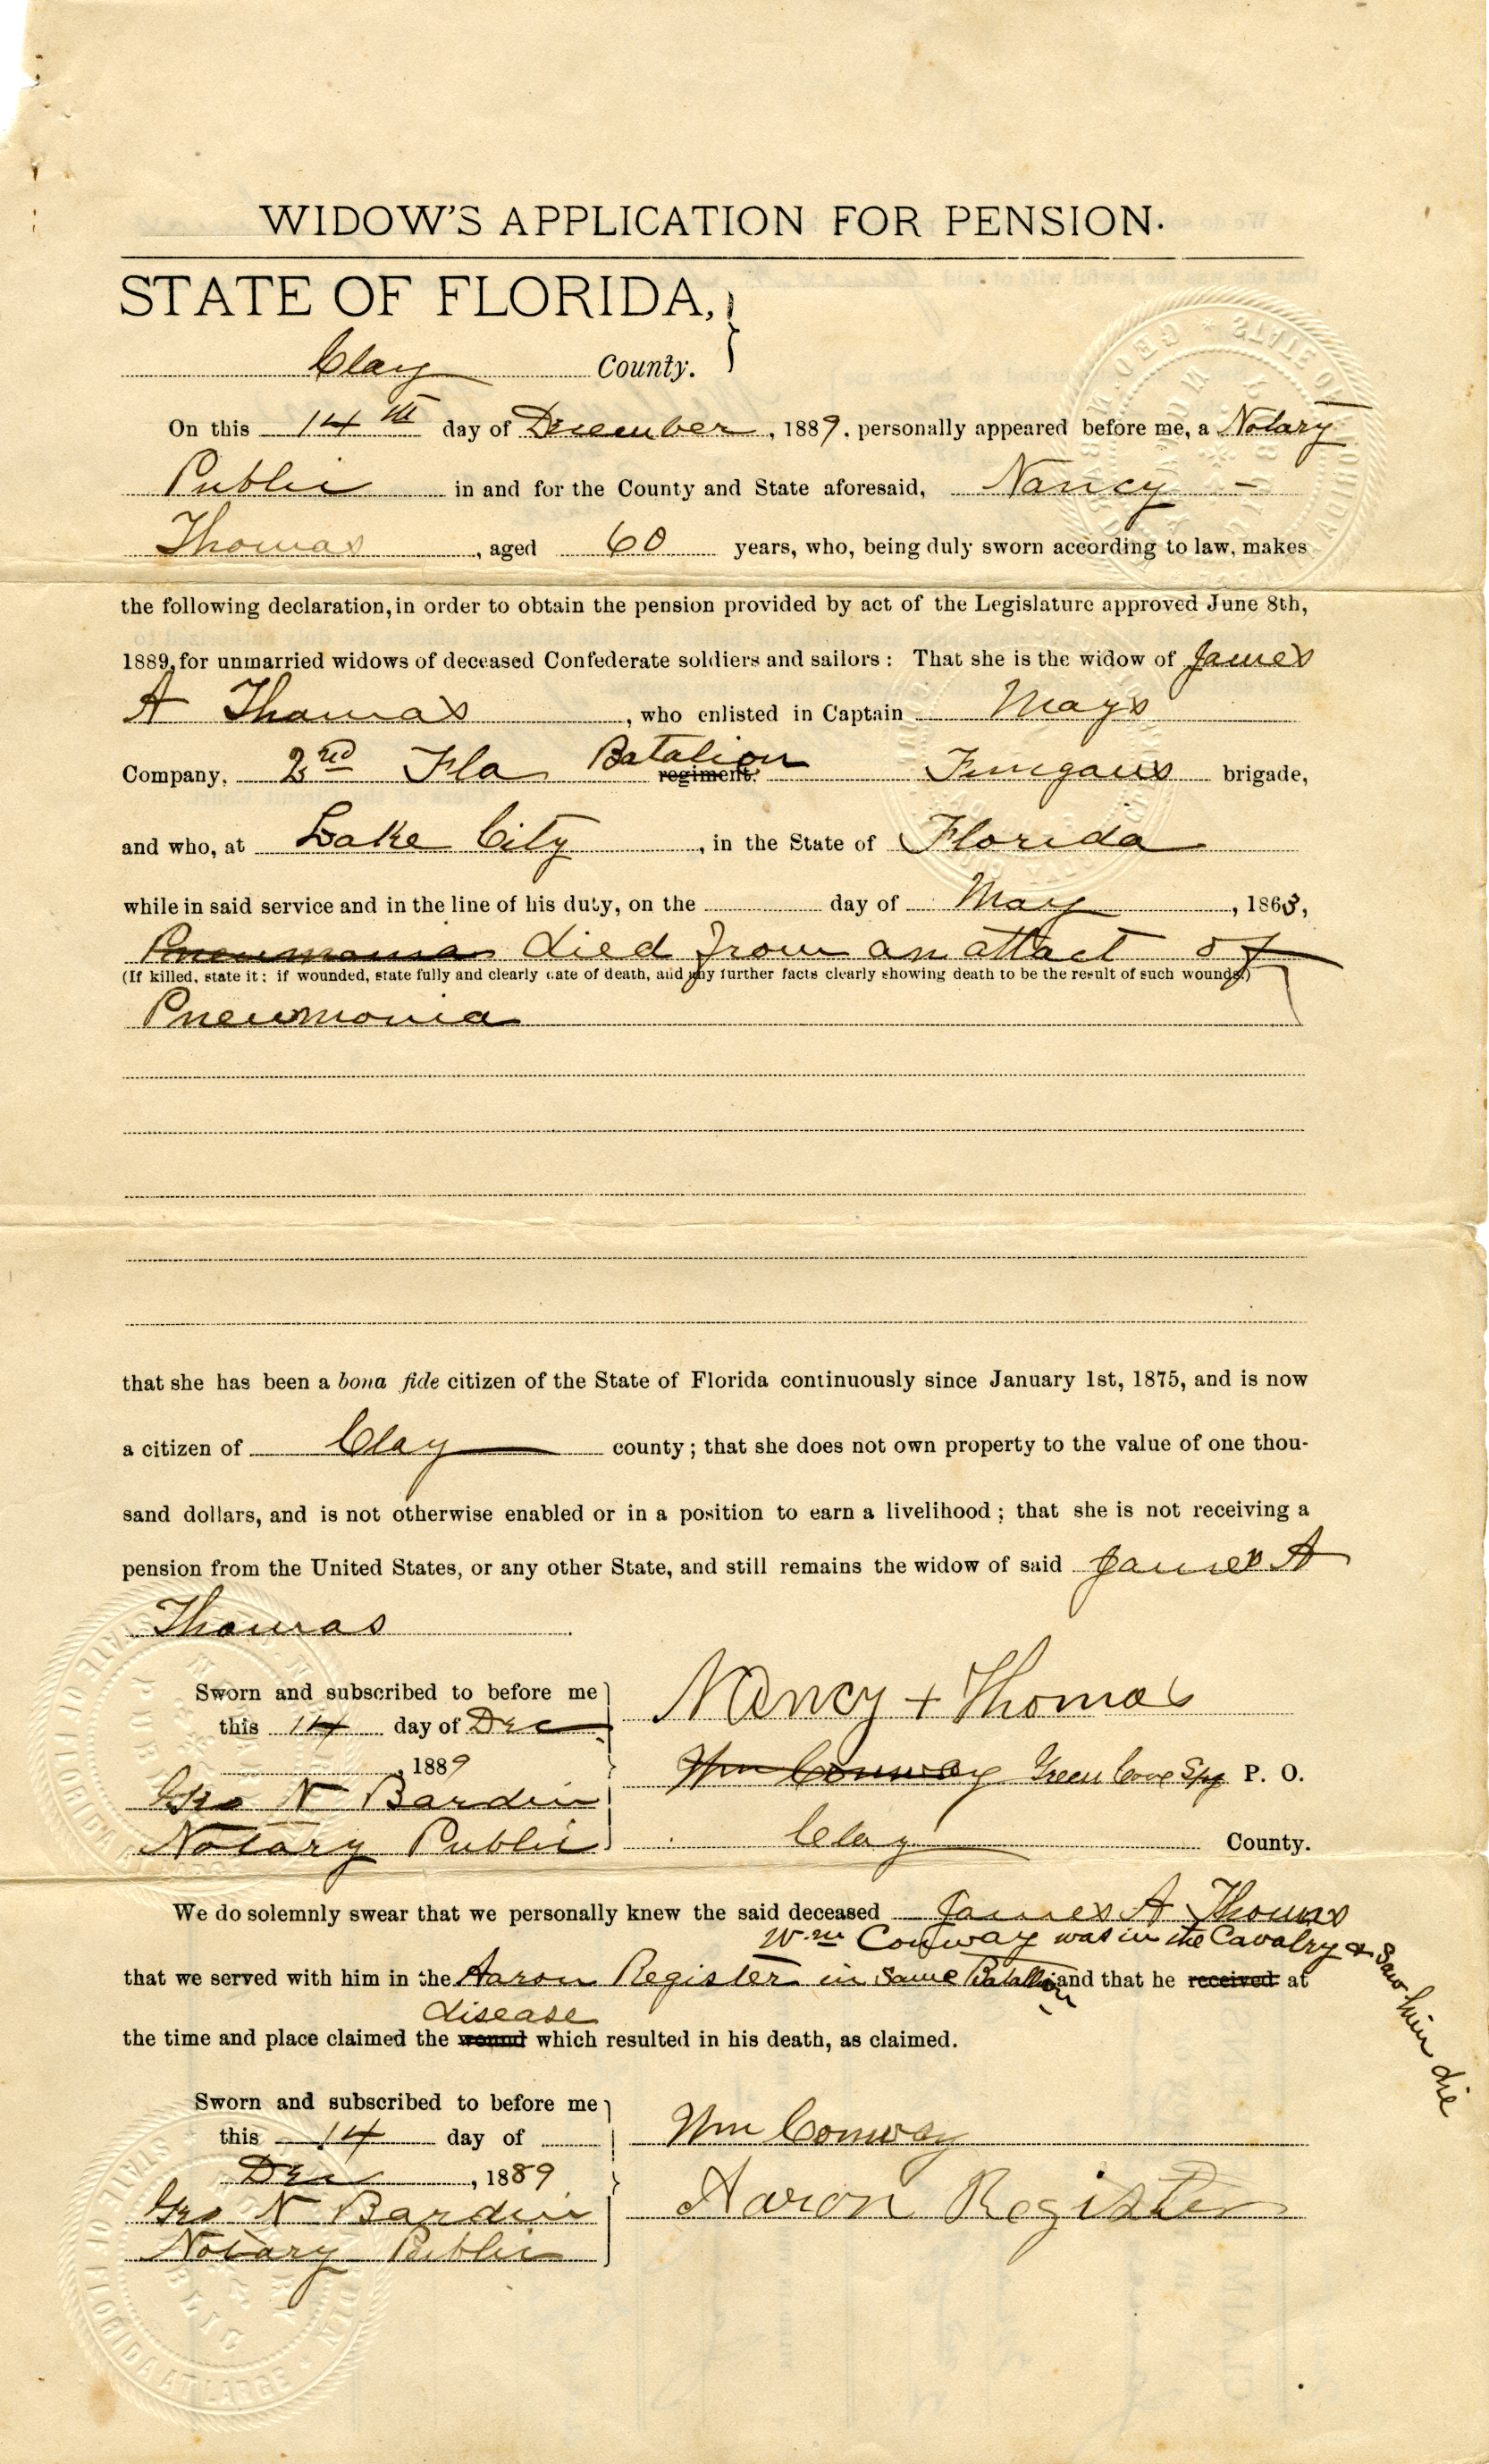 WIDOW'S APPLICATION FOR PENSION.
STATE OF FLORIDA,
Clay County.
On this 14th day of December, 1889, personally appeared before me, a Notary
Public in and for the County and State aforesaid, Nancy
Thomas, aged 60 years, who, being duly sworn according to law, makes
the following declaration, in order to obtain the pension provided by act of the Legislature approved June 8th,
1889, for unmarried widows of deceased Confederate soldiers and sailors: That she is the widow of James
A Thomas, who enlisted in Captain Mays
Company, 2nd Fla Batalion regiment, Finegans brigade,
and who, at Lake City, in the State of Florida
while in said service and in the line of his duty, on the day of May, 1863,
Pneumonia died from an attact of
(If killed, state it; if wounded, state fully and clearly date of death, and any further facts clearly showing death to be the result of such wounds.)
Pneumonia
that she has been a bona fide citizen of the State of Florida continuously since January 1st, 1875, and is now
a citizen of Clay county; that she does not own property to the value of one thou-
sand dollars, and is not otherwise enabled or in a position to earn a livelihood; that she is not receiving a
pension from the United States, or any other State, and still remains the widow of said James A
Thomas
Sworn and subscribed to before me
this 14 day of Dec
, 1889
Geo N Bardin
Notary Public
Nancy + Thomas
Wm Conway Green Cove Spg P. O.
Clay County.
We do solemnly swear that we personally knew the said deceased James A Thomas
Wm Conway was in the Cavalry & saw him die
that we served with him in the Aaron Register in Same Batallion and that he received at
disease
the time and place claimed the wound which resulted in his death, as claimed.
Sworn and subscribed to before me
this 14 day of
Dec, 1889
Geo N Bardin
Notary Public
Wm Conway
Aaron Register